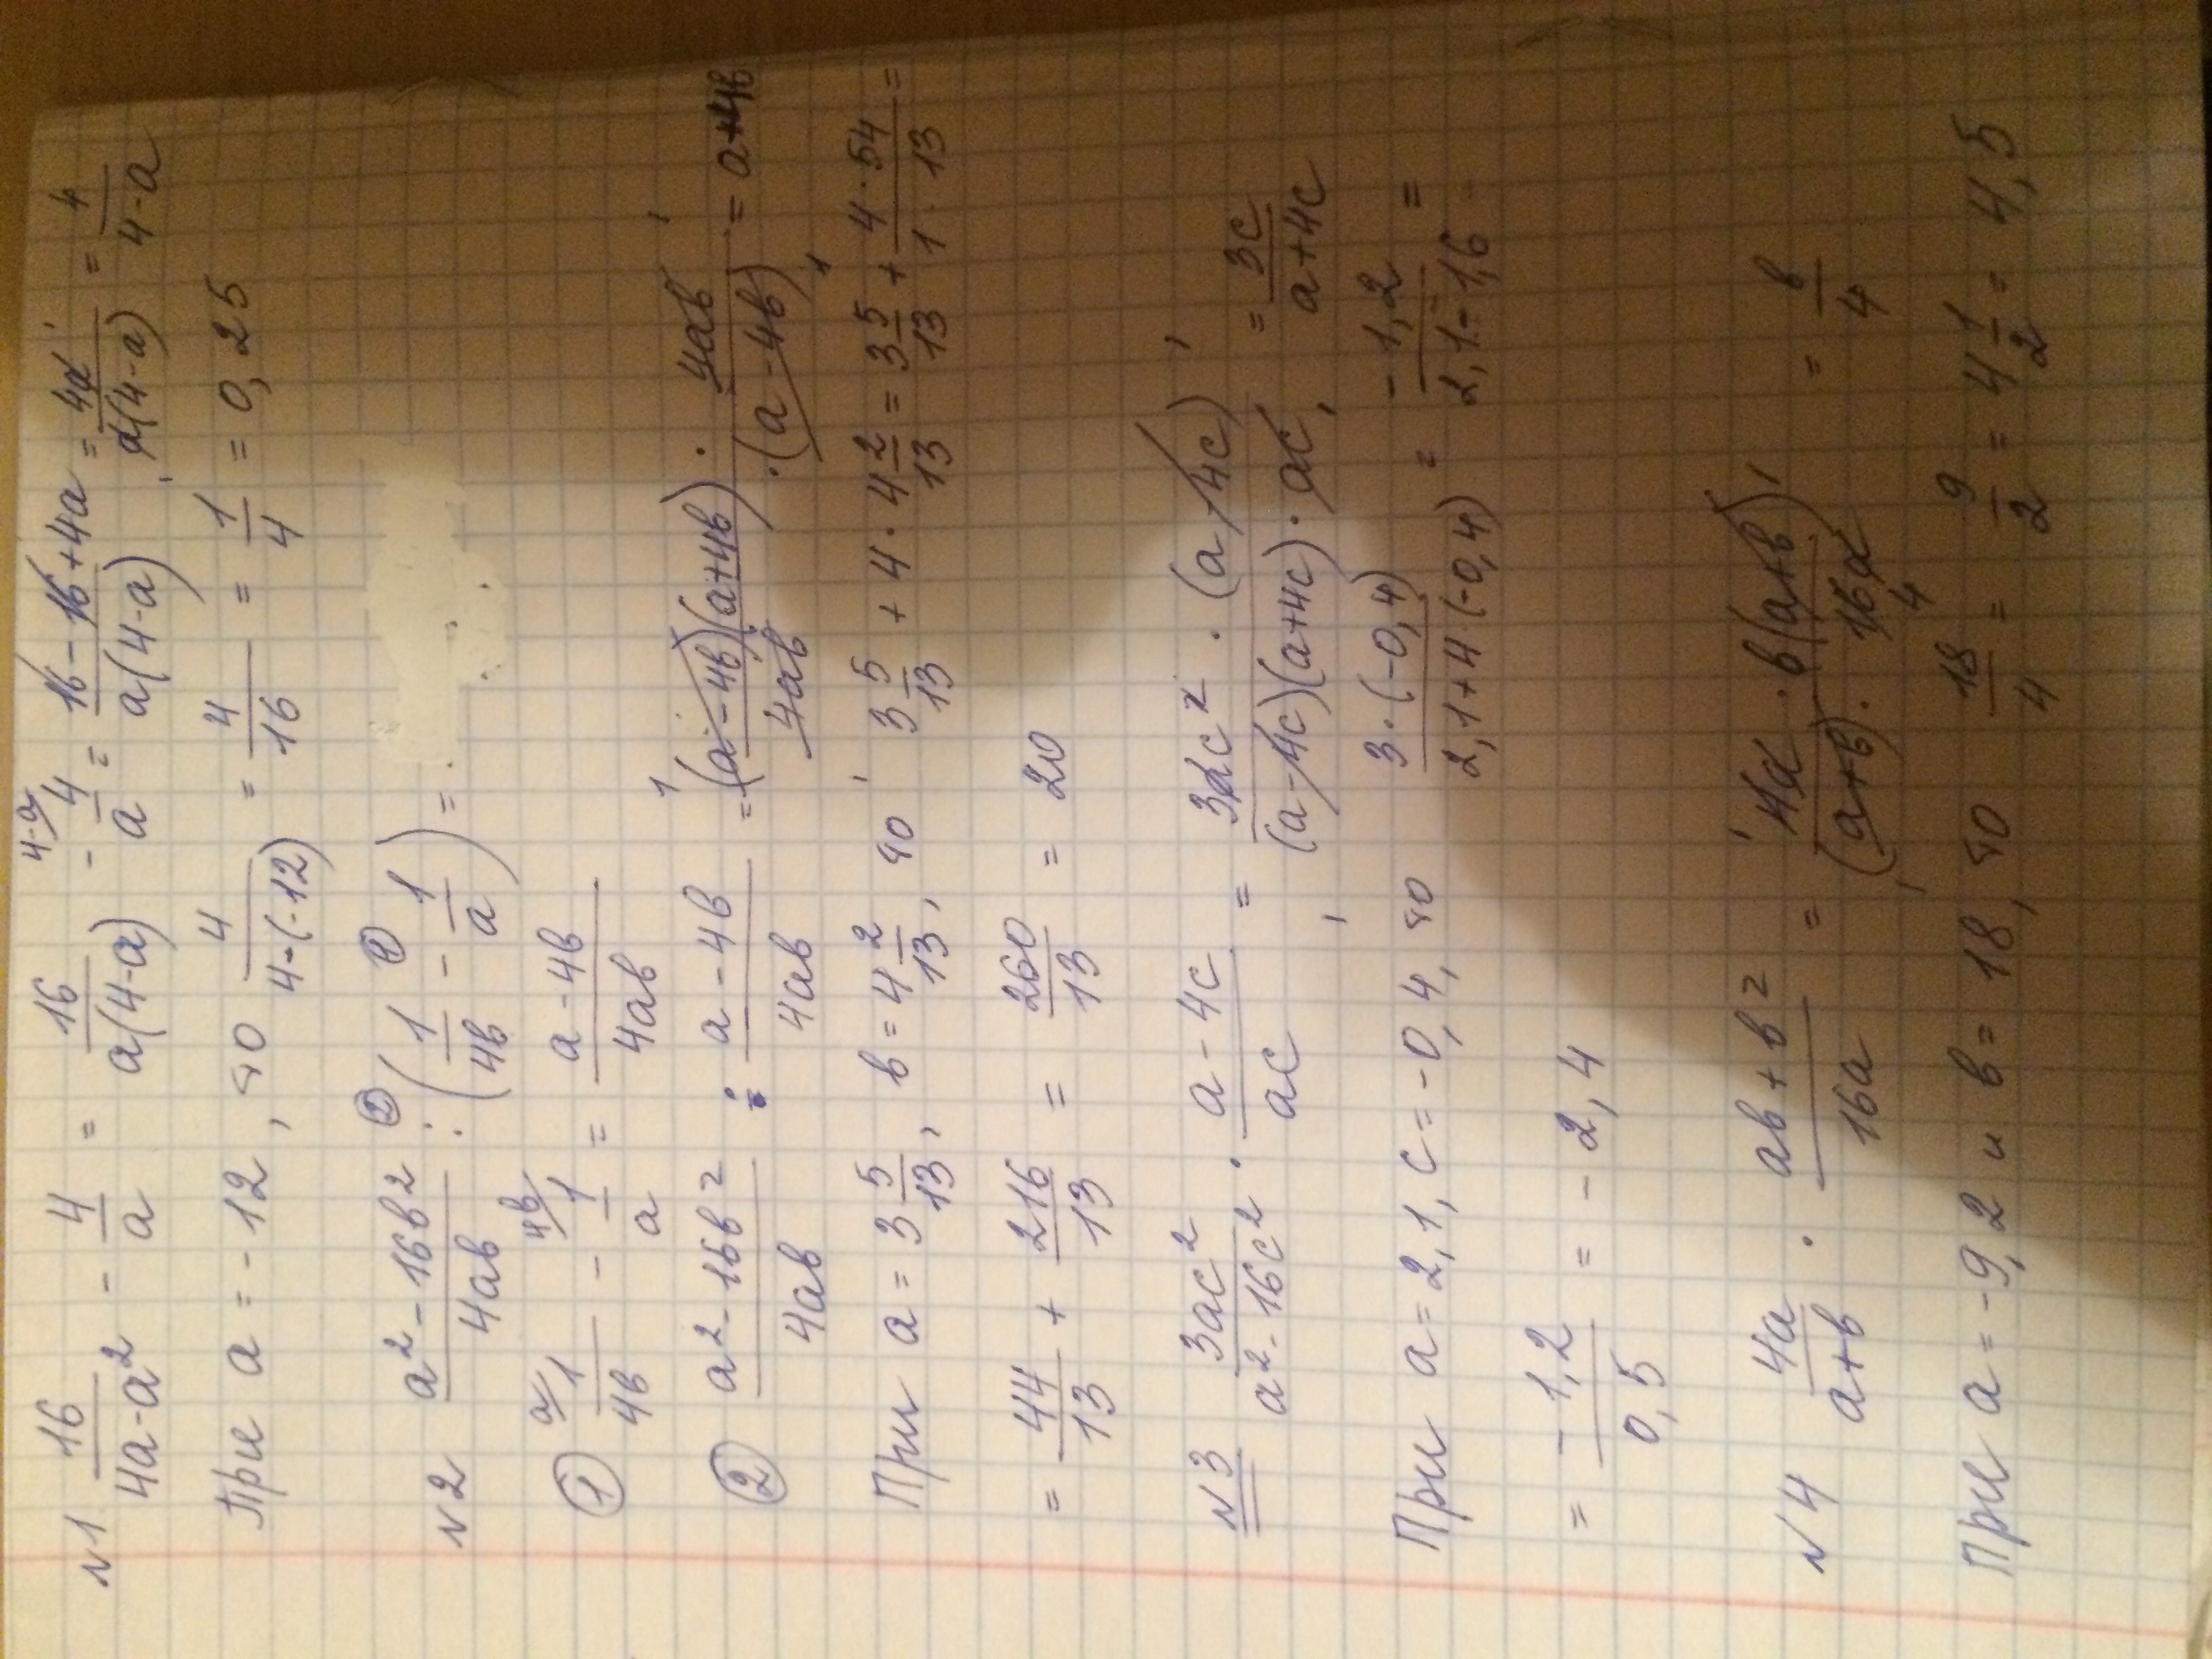 N1 16/(4a-a²) - 4/a = 16/(a(4-a)) - 4/a^(4-a) = (16-16+4a)/(a(4-a)) = 4a/(a(4-a)) = 4/(4-a)
При a = -12, то 4/(4-(-12)) = 4/16 = 1/4 = 0,25
N2 (a²-16в²)/(4aв) : (1/(4в) - 1/a) =
① 1/(4в)^a - 1/a^(4в) = (a-4в)/(4aв)
② (a²-16в²)/(4aв) : (a-4в)/(4aв) = ((a-4в)(a+4в) · 4aв)/(4aв · (a-4в)) = a+4в
При a = 3 5/13, в = 4 2/13, то 3 5/13 + 4 · 4 2/13 = 3 5/13 + (4·54)/(1·13) =
= 44/13 + 216/13 = 260/13 = 20
N3 3ac²/(a²-16c²) · (a-4c)/ac = (3ac² · (a-4c))/((a-4c)(a+4c) · ac) = 3c/(a+4c)
При a = 2,1, c = -0,4, то (3·(-0,4))/(2,1+4·(-0,4)) = -1,2/(2,1-1,6) =
= -1,2/0,5 = -2,4
N4 4a/(a+в) · (aв+в²)/16a = (4a · в(a+в))/((a+в) · 16a) = в/4
При a = -9,2 и в = 18, то 18/4 = 9/2 = 4 1/2 = 4,5